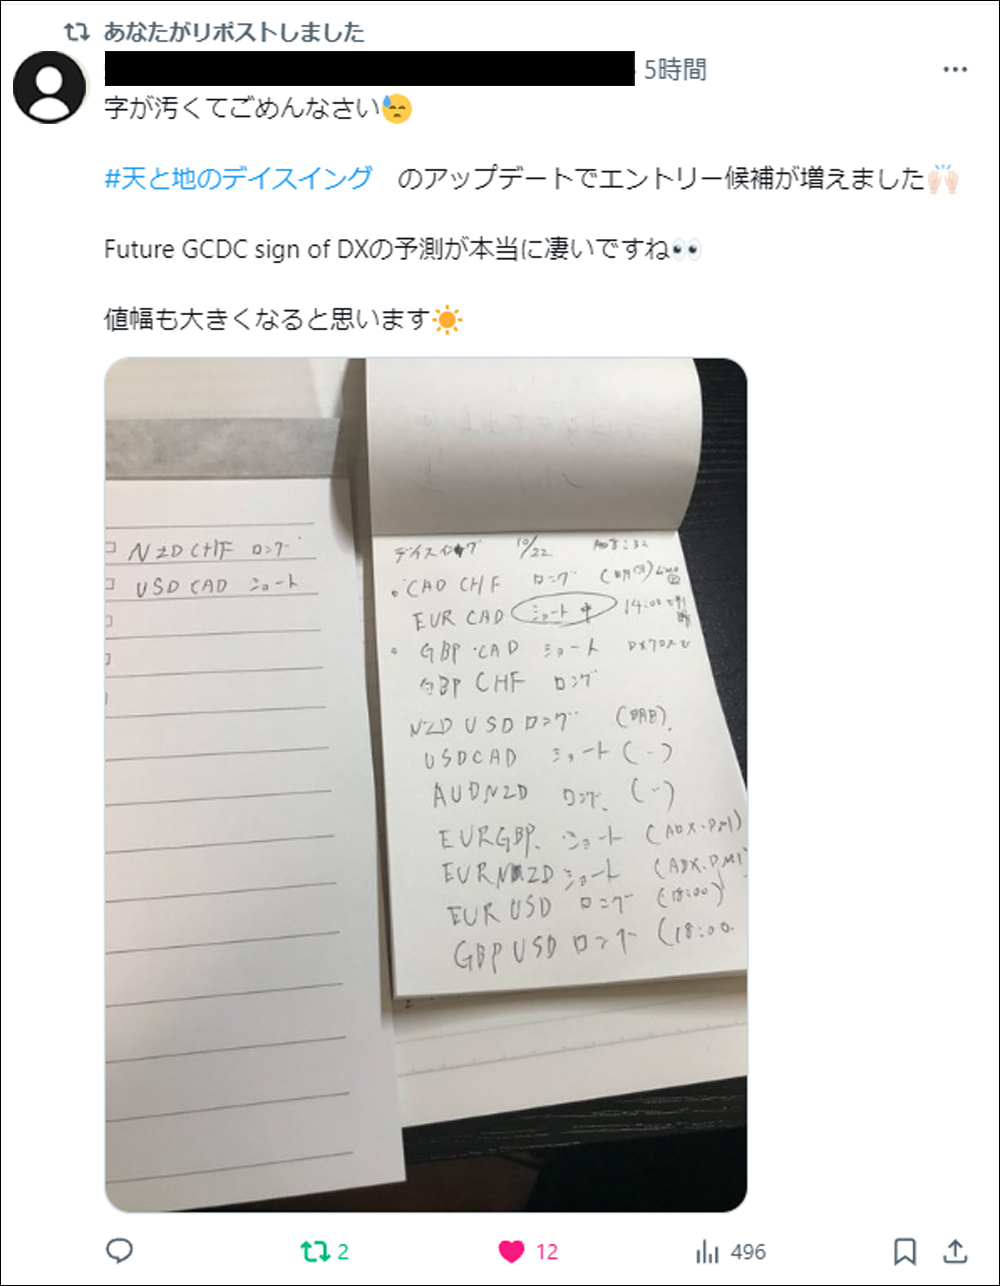 あなたがリポストしました
5時間
字が汚くてごめんなさい
#天と地のデイスイング のアップデートでエントリー候補が増えました
Future GCDC sign of DXの予測が本当に凄いですね
値幅も大きくなると思います
NZD CHF ロング
USD CAD ショート
デイスイング 10/22
CAD CHF ロング (明日)
EUR CAD ショート中 14:00
GBP CAD ショート DX
GBP CHF ロング
NZD USD ロング (明日)
USDCAD ショート (〃)
AUDNZD ロング (〃)
EURGBP ショート (ADX・DMI)
EURNZD ショート (ADX・DMI)
EUR USD ロング (18:00)
GBP USD ロング (18:00
2
12
496